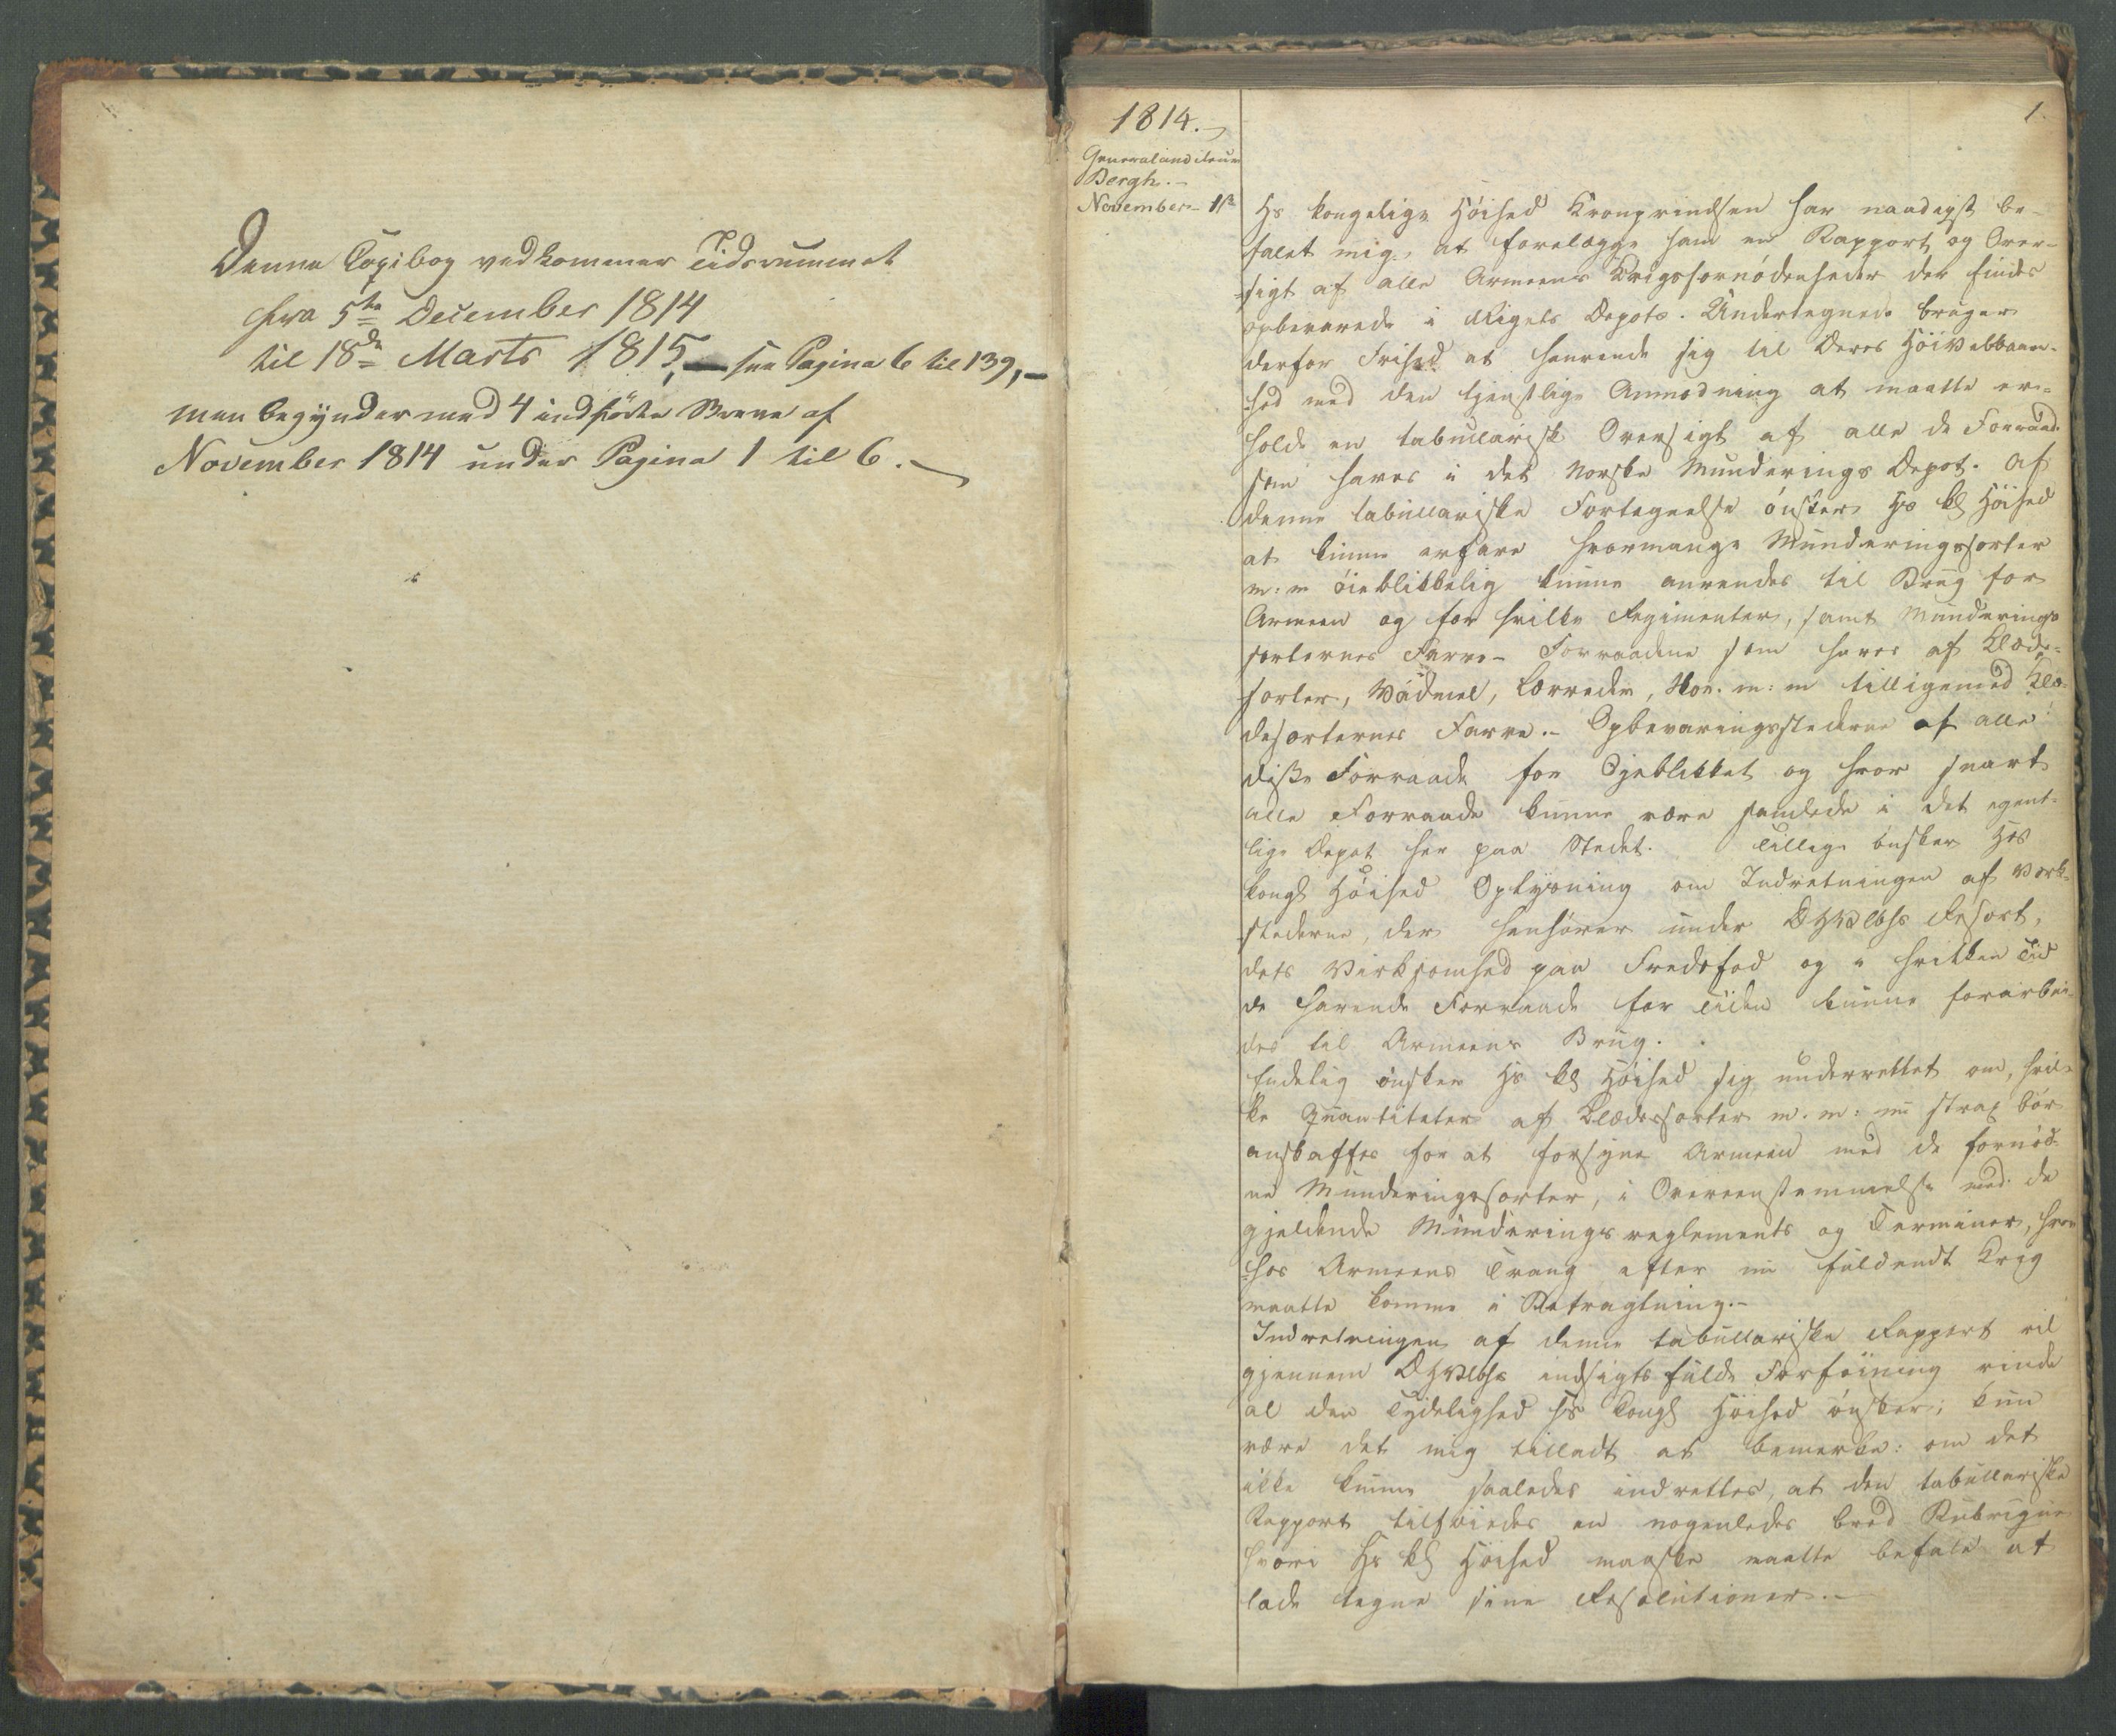 Denne Copibog vedkommer Tidsrummet
fra 5te December 1814
til 18de Marts 1815, — see Pagina 6 til 139, —
men begynder med 4 indførte Breve af
November 1814 under Pagina 1 til 6. —
1814. —
1.
Generalauditeur
Bergh. —
November 1ste
Hs kongelige Høihed Kronprindsen har naadigst be-
falet mig, at forelægge ham en Rapport og Over-
sigt af alle Armeens Krigsfornødenheder der findes
opbevarede i Rigets Depots. Undertegnede bruger
derfor Frihed at henvende sig til Deres Høivelbaaren-
hed med den tjenstlige Anmodning at maatte er-
holde en tabullarisk Oversigt af alle de Forraade
som haves i det Norske Munderings Depot. Af
denne tabullariske Fortegnelse ønsker Hs kl Høihed
at kunne erfare hvormange Munderingssorter
m: m øieblikkelig kunne anvendes til Brug for
Armeen og for hvilke Regimenter, samt Munderings
sorternes Farve - Forraadene som haves af Klæde-
sorter, Vadmel, Lærreder, Skoe m: m tilligemed Klæ-
desorternes Farve. - Opbevaringsstederne af alle
disse Forraade for Øjeblikket og hvor snart
alle Forraade kunne være samlede i det egent-
lige Depot her paa Stedet. Tillige ønsker Hs
kongl Høihed Oplysning om Indretningen af Værk-
stederne, der henhører under DHVelbhs Resort,
dets Virksomhed paa Fredsfod og i hvilken Tid
de havende Forraade for Tiden kunne forarbei-
des til Armeens Brug.
Endelig ønsker Hs kl Høihed sig underrettet om, hvil-
ke Quantiteter af Klædessorter m. m: nu strax bør
anskaffes for at forsyne Armeen med de fornød-
ne Munderingssorter, i Overeenstemmelse med de
gjeldende Munderingsreglements og Terminer, hvor
hos Armeens Trang efter nu fuldendt Krig
maatte komme i Betragtning. -
Indretningen af denne tabullariske Rapport vil
gjennem DHVelbhs indsigtsfulde Forføining vinde
al den Tydelighed Hs kongl Høihed ønsker; kun
være det mig tilladt at bemerke: om det
ikke kunne saaledes indrettes, at den tabullariske
Rapport tilføiedes en nogenledes bred Rubrique
hvori Hs kl Høihed maaske maatte befale at
lade tegne sine Resolutioner. —